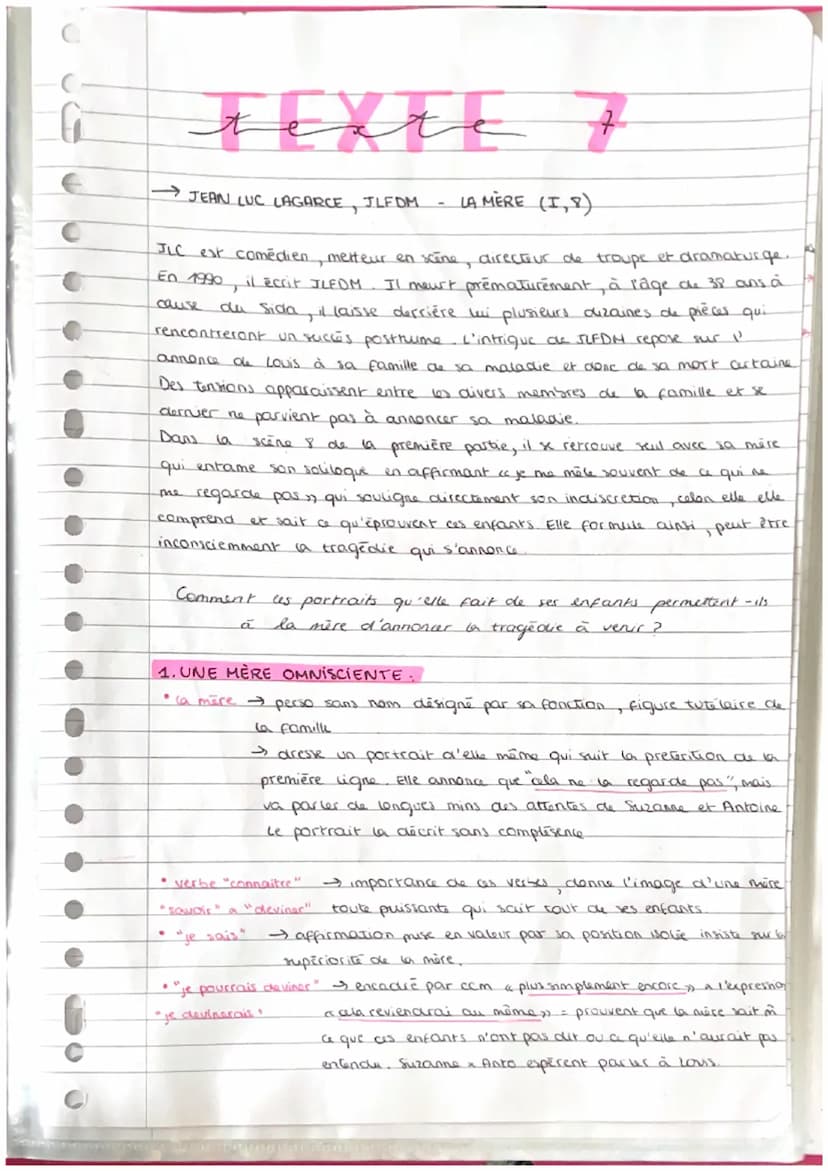 TEXTE 7
texte 7
→ JEAN LUC LAGARCE, JLFDM - LA MÈRE (I,8)
JLC est comédien, metteur en scène, directeur de troupe et dramaturge.
En 1990, il écrit JLFDM. Il meurt prématurément, à l'âge de 38 ans à
cause du Sida, il laisse derrière lui plusieurs dizaines de pièces qui
rencontreront un succès posthume. L'intrigue de JLFDM repose sur l'
annonce de Louis à sa famille de sa maladie et donc de sa mort certaine
Des tensions apparaissent entre les divers membres de la famille et se
dernier ne parvient pas à annoncer sa maladie.
Dans la scène 8 de la première partie, il se retrouve seul avec sa mère
qui entame son soliloque en affirmant « je me mêle souvent de ce qui ne
me regarde pas » qui souligne directement son indiscretion, celon elle elle
comprend et sait ce qu'éprouvent ces enfants. Elle formule ainsi, peut être
inconsciemment la tragédie qui s'annonce.
Comment les portraits qu'elle fait de ses enfants permettent-ils
à la mère d'annoncer la tragédie à venir ?
1. UNE MÈRE OMNISCIENTE.
• la mère → perso sans nom désigné par sa fonction, figure tutélaire de
la famille
→ dresse un portrait d'elle même qui suit la preterition de la
première ligne. Elle annonce que "cela ne la regarde pas", mais
va parler de longues mins des attentes de Suzanne et Antoine
Le portrait la décrit sans complisence
• verbe "connaitre" → importance de ces verbes, donne l'image d'une mère
"savoir" a "deviner" toute puissante qui sait tout de ses enfants.
• "je sais" → affirmation mise en valeur par sa position isolée insiste sur la
supériorité de la mère.
• "je pourrais deviner" → encadré par ccm « plus simplement encore » a l'expression
"je devinerais" « cela reviendrai au même » = prouvent que la mère sait m̂
ce que ces enfants n'ont pas dit ou ce qu'elle n'aurait pas
entendu. Suzanne × Anto espèrent parler à Louis.